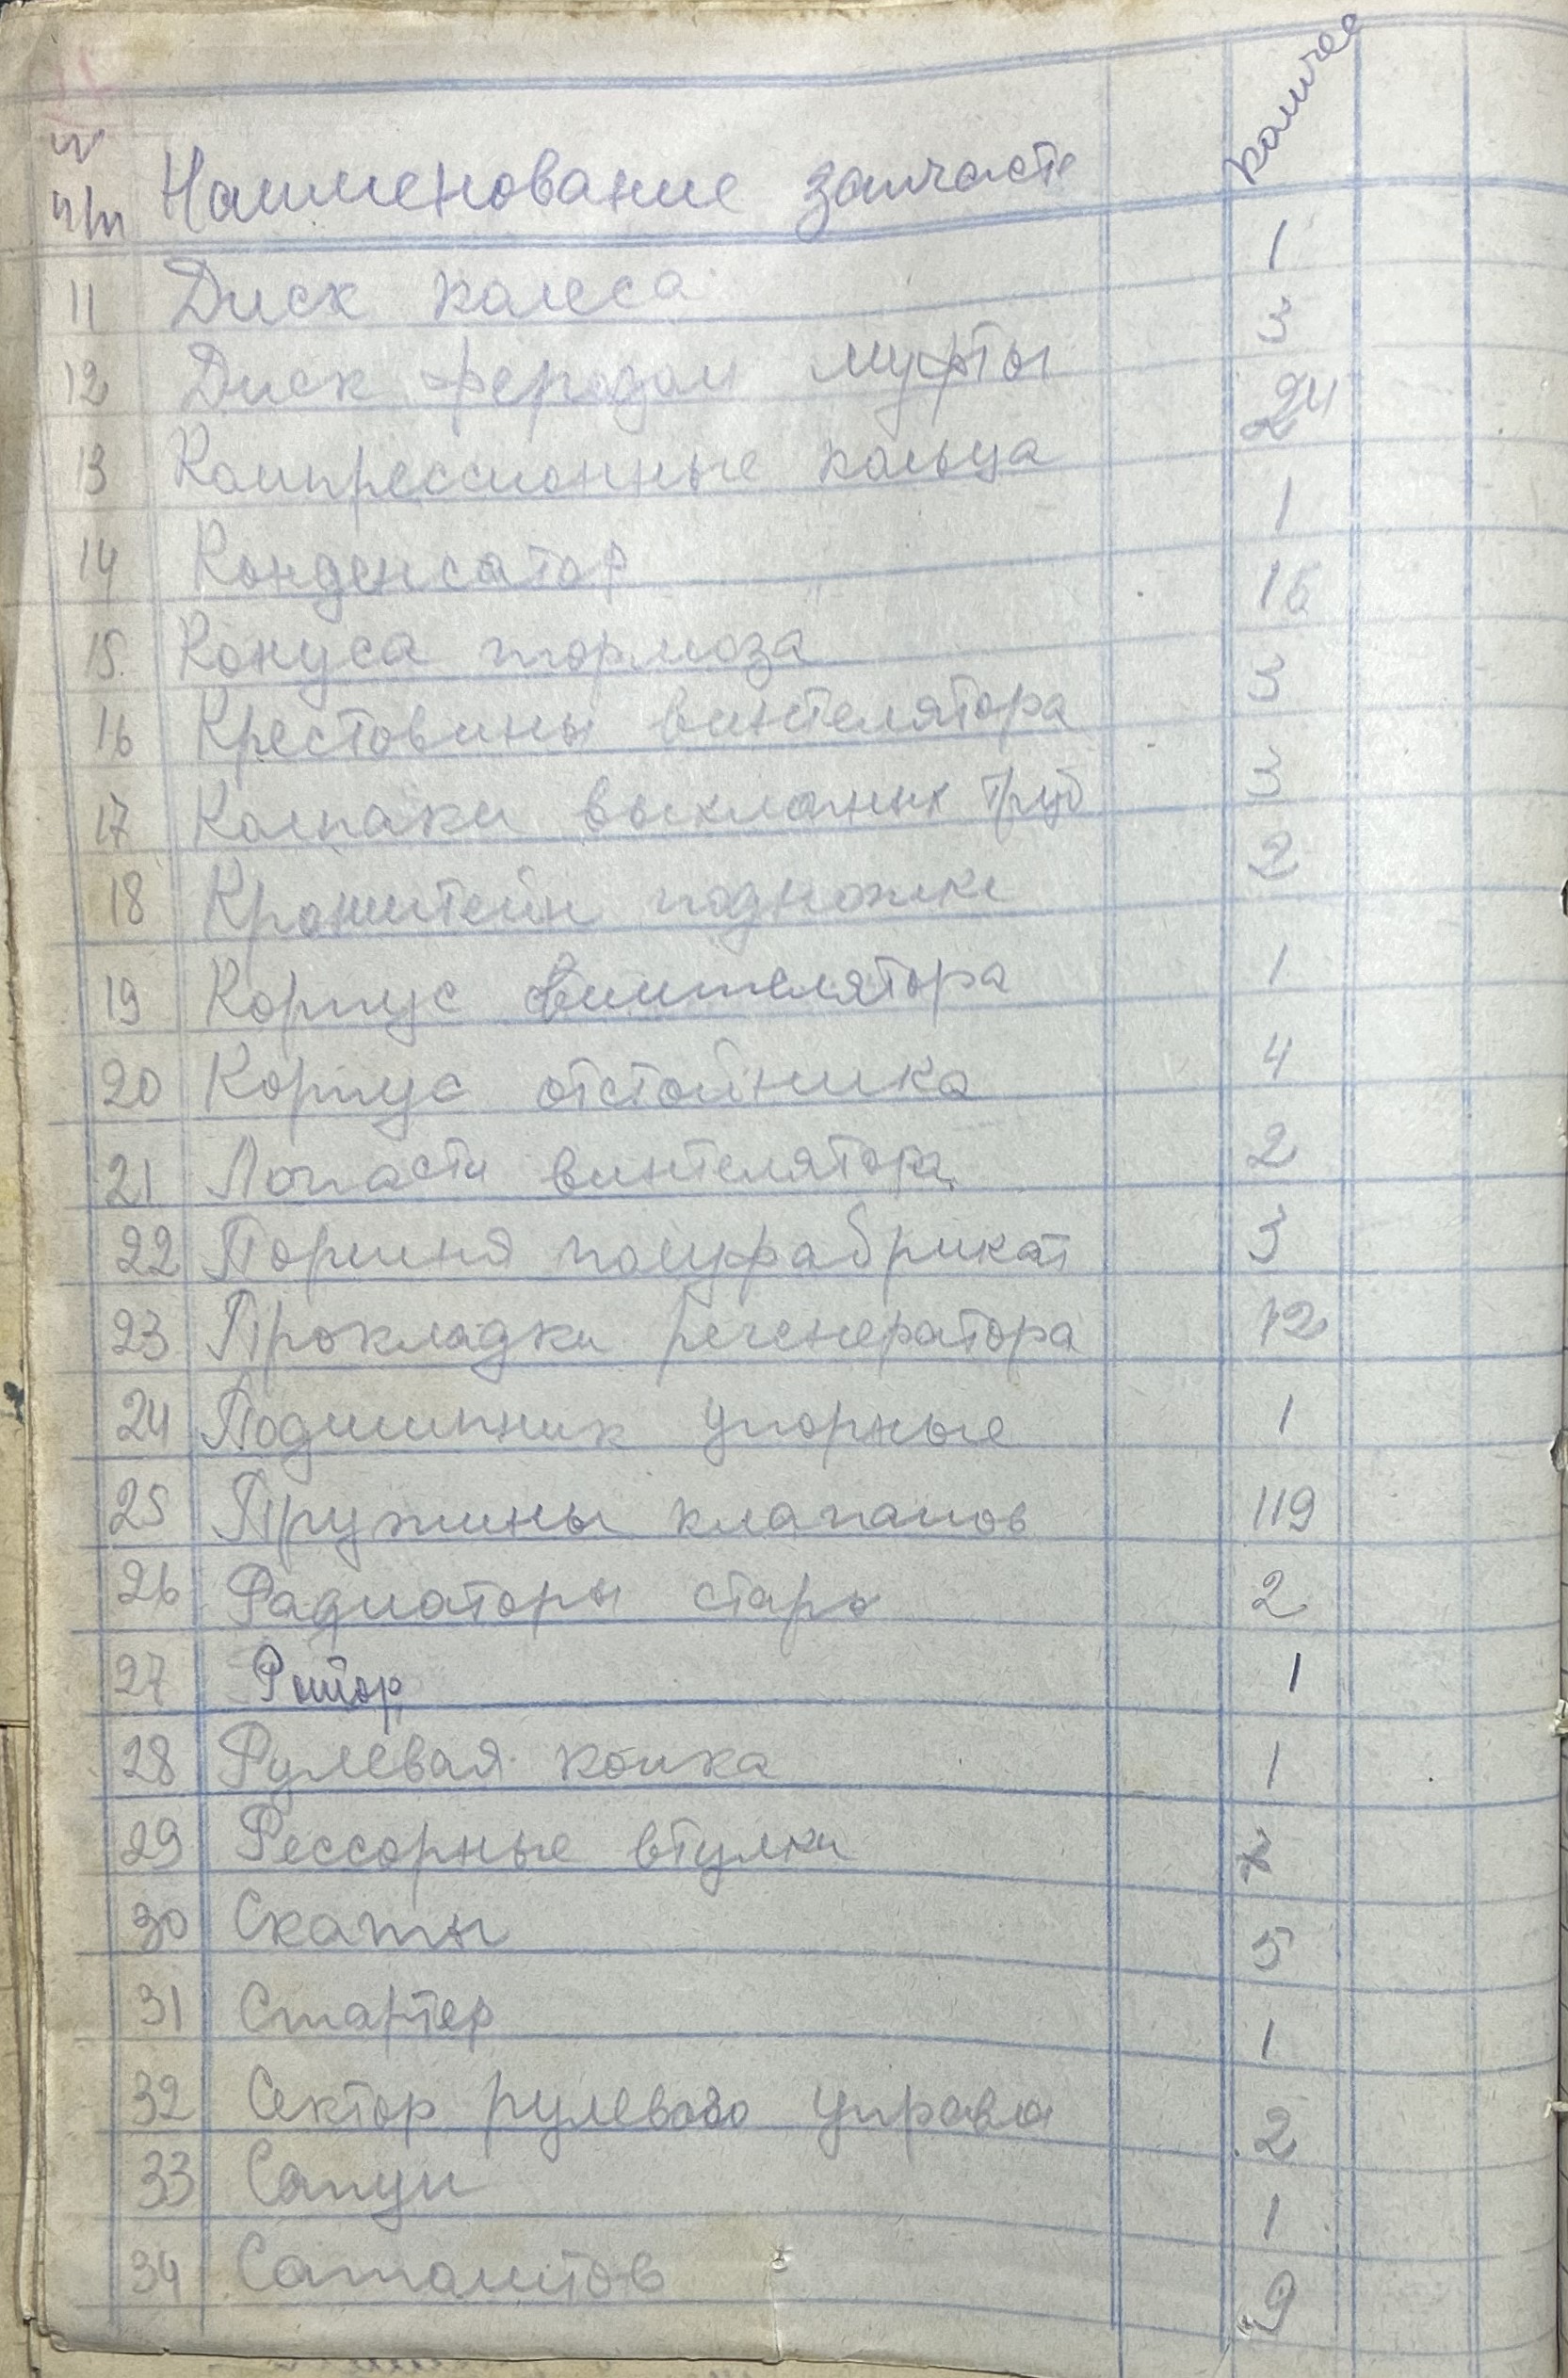 № п/п Наименование запчасте количес
11 Диск колеса 1
12 Диск феродом муфты 3
13 Компрессионные кольца 24
14 Конденсатор 1
15 Конуса тормоза 16
16 Крестовины винтелятора 3
17 Колпаки выхлопных труб 3
18 Кронштейн подножки 2
19 Корпус винтелятора 1
20 Корпус отстойника 4
21 Лопасти винтелятора 2
22 Поршня полуфабрикат 3
23 Прокладки регенератора 12
24 Подшипник упорные 1
25 Пружины клапанов 119
26 Радиаторы стары 2
27 Ротор 1
28 Рулевая 1
29 Рессорные втулки
30 Скаты 5
31 Стартер 1
32 Сектор рулевого управл 2
33 Сапун 1
34 9